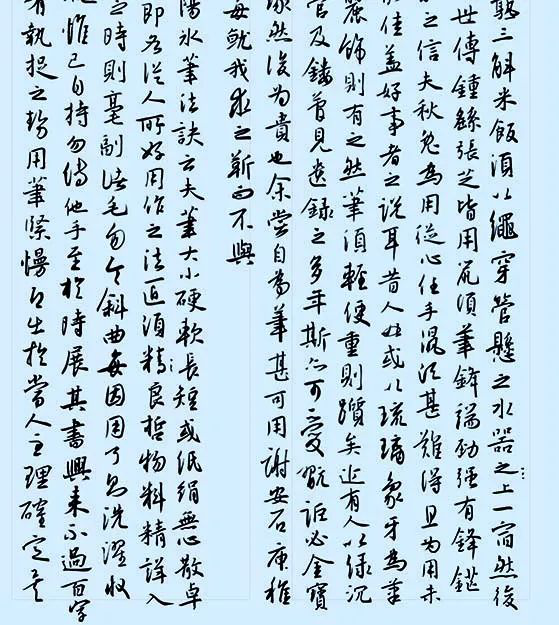 熟三斛米飯須以繩穿管懸之水器之上一宿然後
世傳鍾繇張芝皆用鼠須筆鋒端勁强有鋒鋩
之信夫秋兔為用從心任手鼠須甚難得且為用未
佳蓋好事者之說耳昔人或以琉璃象牙為筆
麗飾則有之然筆須輕便重則躓矣近有人以綠沉
管及鏤管見遺錄之多年斯亦可愛翫詎必金寶
琢然後為貴也余嘗自為筆甚可用謝安石庾稚
每就我求之靳而不與
陽冰筆法訣云夫筆大小硬軟長短或紙絹無心散卓
即各從人所好用作之法匠須精良哲物料精詳入
之時則毫副諸毛勿令斜曲每因用了急洗濯收
惟己自持勿傳他手至於時展其書興來不過百字
有執捉之勢用筆緊慢即出於當人主理確定矣